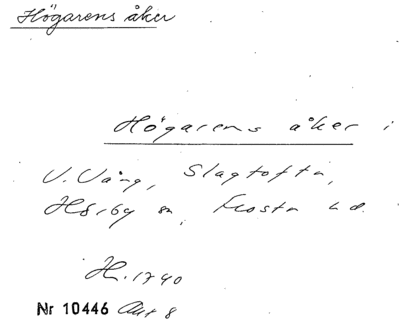 Högarens åker
Högarens åker i
V. Vång, Slagtofta,
Hörby sn, Frosta hd.
H. 1740
Nr 10446 Akt 8